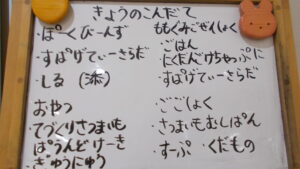 きょうのこんだて
・ぽーくびーんず
・すぱげてぃーさらだ
・しる(添)
おやつ
・てづくりさつまいも
ぱうんどけーき
・ぎゅうにゅう
ももぐみごぜんしょく
・ごはん
・にくだんごけちゃっぷに
・すぱげてぃーさらだ
・ごごしょく
・さつまいもむしぱん
・すーぷ ・くだもの